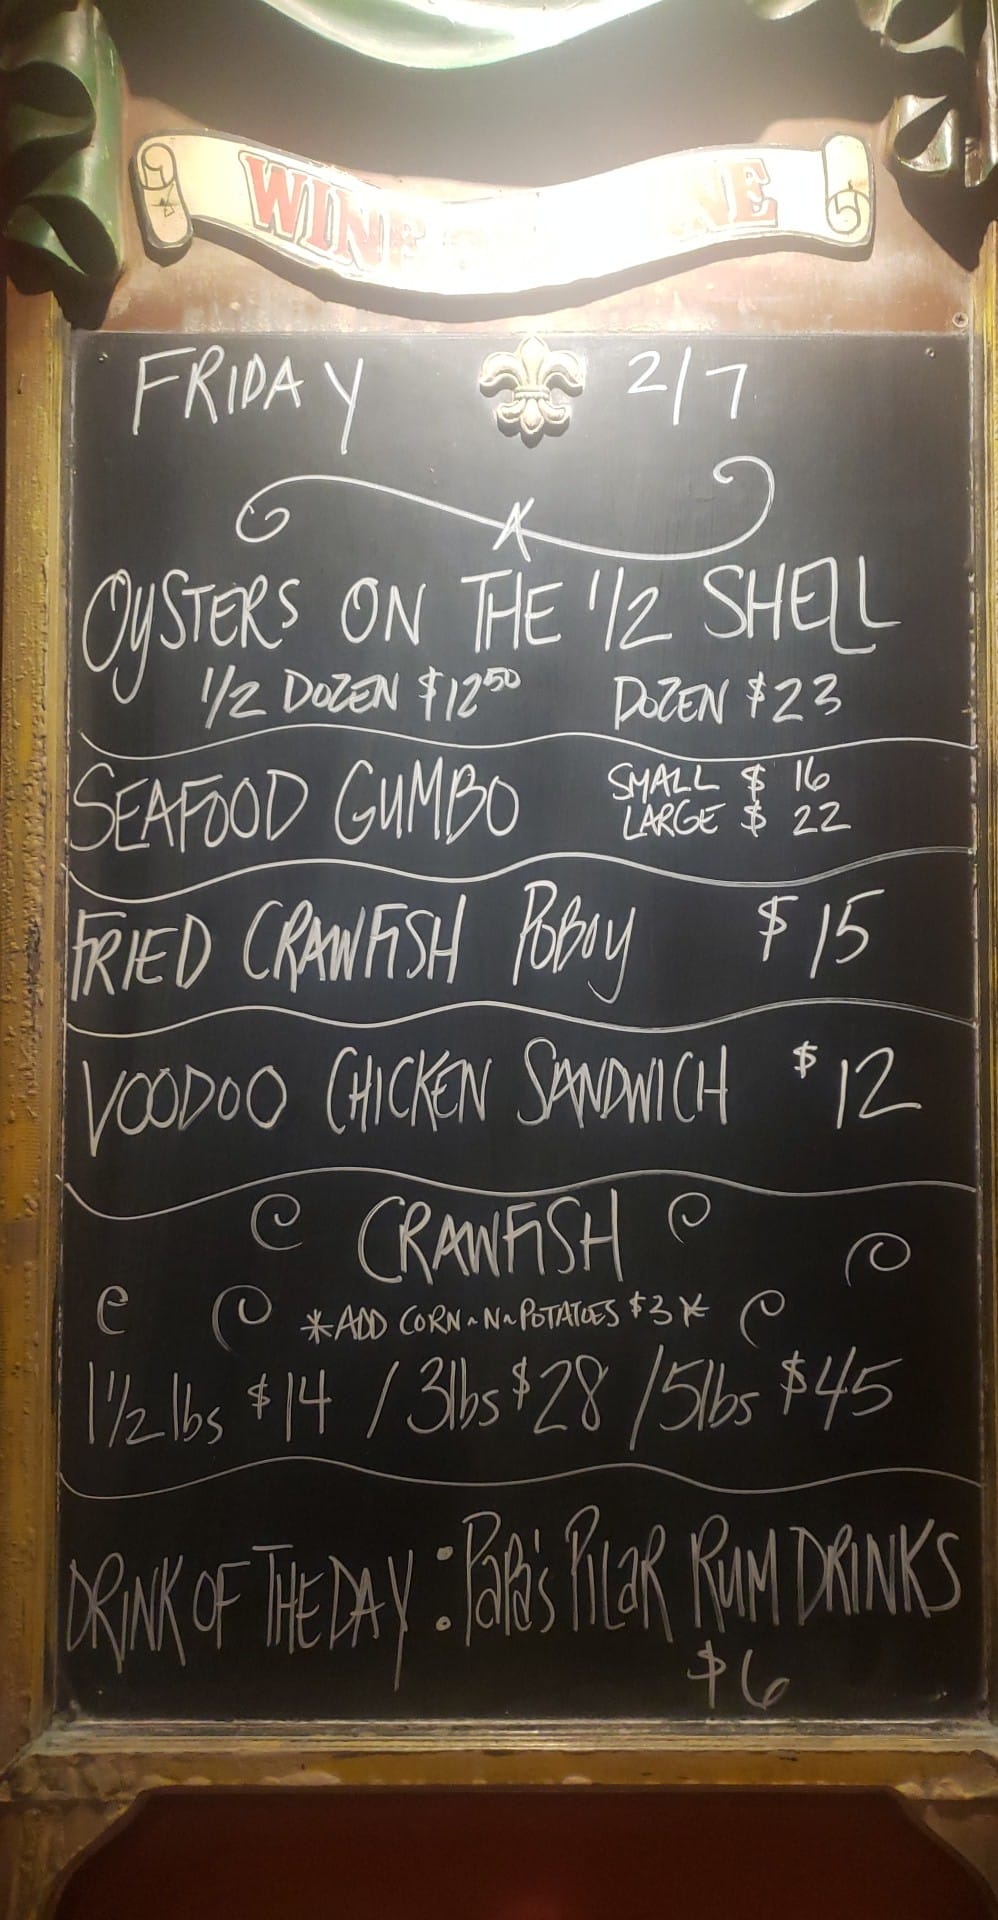 WINE
FRIDAY 2/7
OYSTERS ON THE 1/2 SHELL
1/2 DOZEN $12 50 DOZEN $23
SEAFOOD GUMBO
SMALL $ 16
LARGE $ 22
FRIED CRAWFISH POBOY $15
VOODOO CHICKEN SANDWICH $12
CRAWFISH
*ADD CORN~N~POTATOES $3*
1 1/2 lbs $14 / 3lbs $28 / 5lbs $45
DRINK OF THE DAY: PAPA'S PILAR RUM DRINKS
$6